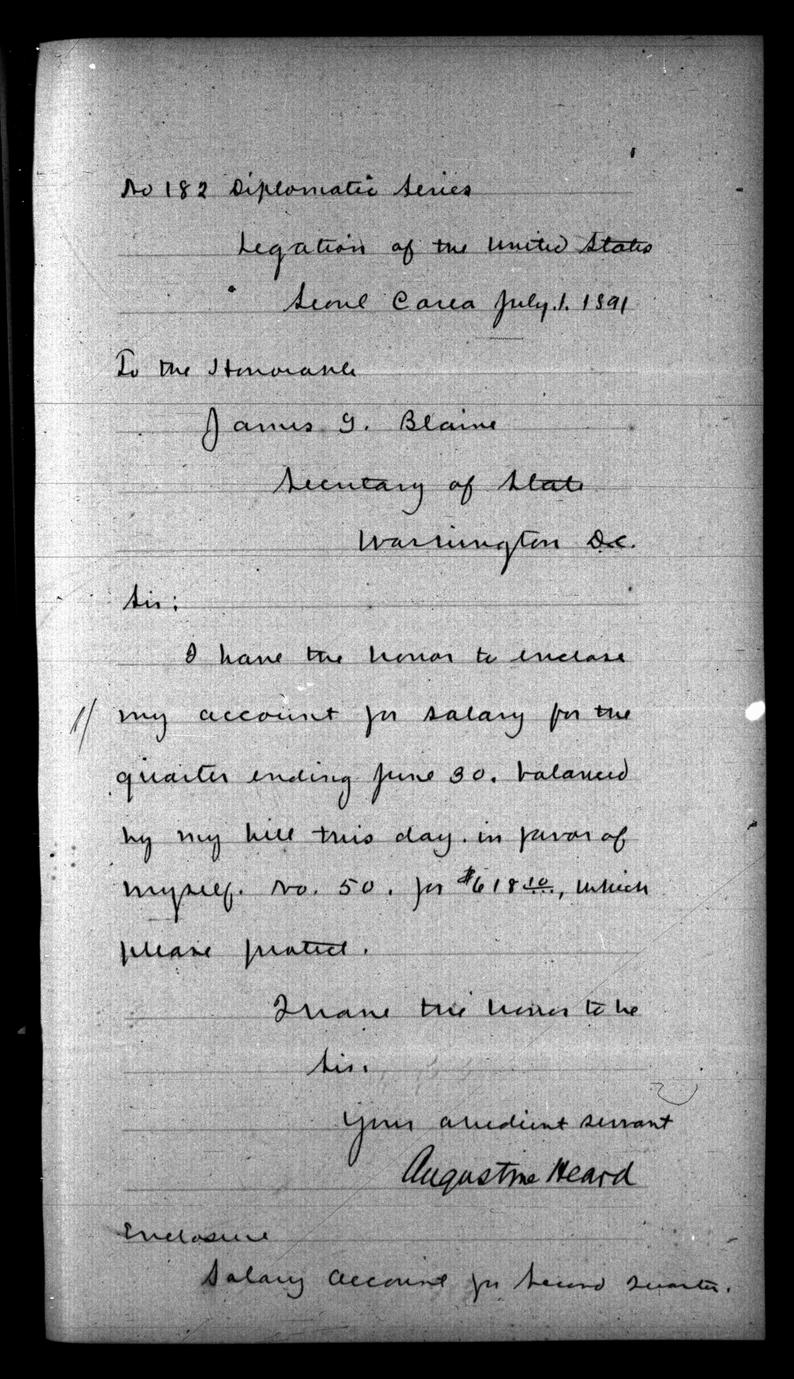 No 182 Diplomatic Series
Legation of the United States
Seoul Corea July. 1. 1891
To the Honorable
James G. Blaine
Secretary of State
Washington D.C.
Sir:
I have the honor to enclose
1/ my account for salary for the
quarter ending June 30. balanced
by my bill this day. in favor of
myself. No. 50. for $618 10/00, which
please protect.
I have the honor to be
Sir.
Your obedient servant
Augustine Heard
Enclosure
Salary account for Second Quarter.